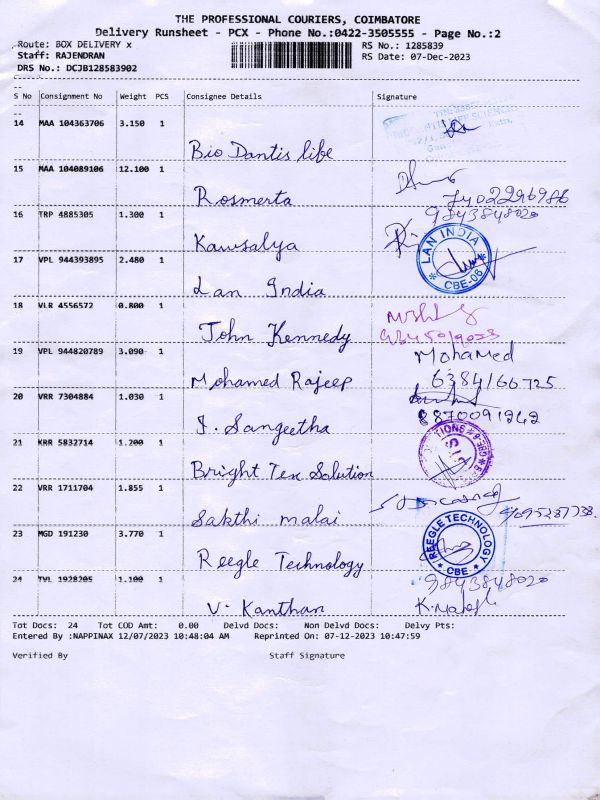 THE PROFESSIONAL COURIERS, COIMBATORE
Delivery Runsheet - PCX - Phone No.:0422-3505555 - Page No.:2
Route: BOX DELIVERY x RS No.: 1285839
Staff: RAJENDRAN RS Date: 07-Dec-2023
DRS No.: DCJB128583902
S No Consignment No Weight PCS Consignee Details Signature
14 MAA 104363706 3.150 1
Bio Dantis life
15 MAA 104089106 12.100 1
Rosmerta 7402296986
16 TRP 4885305 1.300 1 9843848020
Kawsalya
17 VPL 944393895 2.480 1 LAN INDIA
CBE-06
Lan India
18 VLR 4556572 0.800 1
John Kennedy
19 VPL 944820789 3.090 1 Mohamed
Mohamed Rajeep 6384166725
20 VRR 7304884 1.030 1
J. Sangeetha 8870091262
21 KRR 5832714 1.200 1
Bright Tex Solution
22 VRR 1711704 1.855 1
Sakthi malai
23 MGD 191230 3.770 1 REEGLE TECHNOLOGY
CBE
Reegle Technology
24 TVL 1928205 1.100 1 9843848020
V. Kanthan
Tot Docs: 24 Tot COD Amt: 0.00 Delvd Docs: Non Delvd Docs: Delvy Pts:
Entered By :NAPPINAX 12/07/2023 10:48:04 AM Reprinted On: 07-12-2023 10:47:59
Verified By Staff Signature